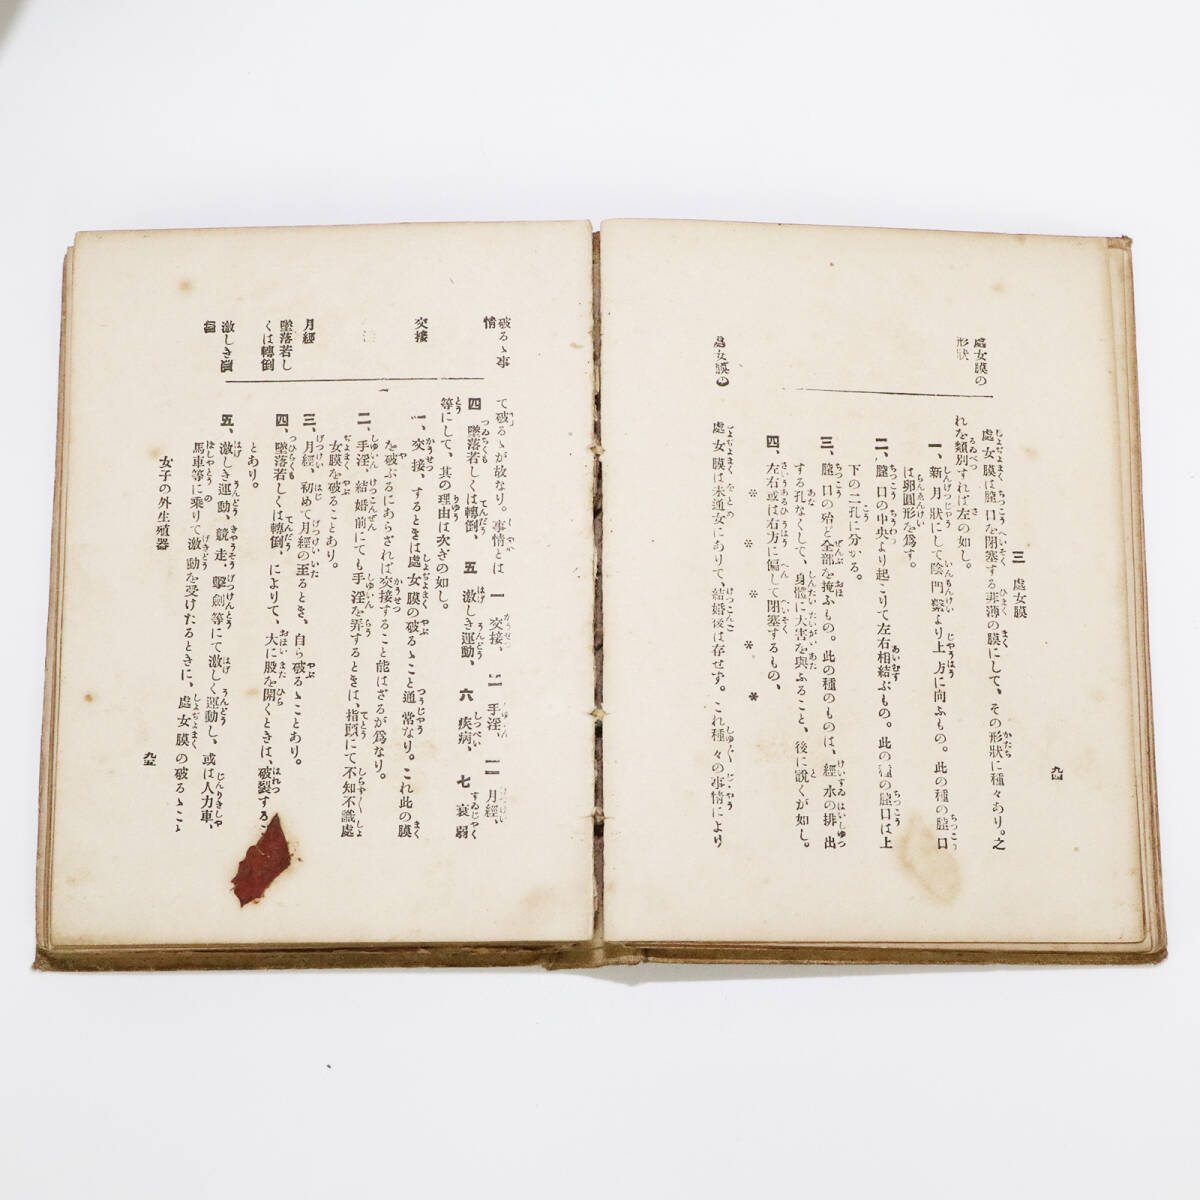 處女膜の
形狀
三 處女膜
處女膜は膣口を閉塞する菲薄の膜にして、その形狀に種々あり。之
れを類別すれば左の如し。
一、新月狀にして陰門繫より上方に向ふもの。此の種の膣口
は卵圓形を爲す。
二、膣口の中央より起こりて左右相結ぶもの。此の種の膣口は上
下の二孔に分かる。
三、膣口の殆ど全部を掩ふもの。此の種のものは、經水の排出
する孔なくして、身體に大害を與ふること、後に說くが如し。
四、左右或は右方に偏して閉塞するもの、
* * * * *
處女膜の
處女膜は未通女にありて、結婚後は存せず。これ種々の事情により
九四
破るゝ事
情
て破るゝが故なり。事情とは 一 交接、二 手淫、三 月經、
四 墜落若しくは轉倒、五 激しき運動、六 疾病、七 衰弱
等にして、其の理由は次ぎの如し。
交接
一、交接、するときは處女膜の破るゝこと通常なり。これ此の膜
を破ぶるにあらざれば交接すること能はざるが爲なり。
二、手淫、結婚前にても手淫を弄するときは、指頭にて不知不識處
女膜を破ることあり。
月經
三、月經、初めて月經の至るとき、自ら破るゝことあり。
墜落若し
くは轉倒
四、墜落若しくは轉倒、によりて、大に股を開くときは、破裂するこ
とあり。
激しき運
五、激しき運動、競走、擊劍等にて激しく運動し、或は人力車、
馬車等に乘りて激動を受けたるときに、處女膜の破るゝこと
女子の外生殖器
九五